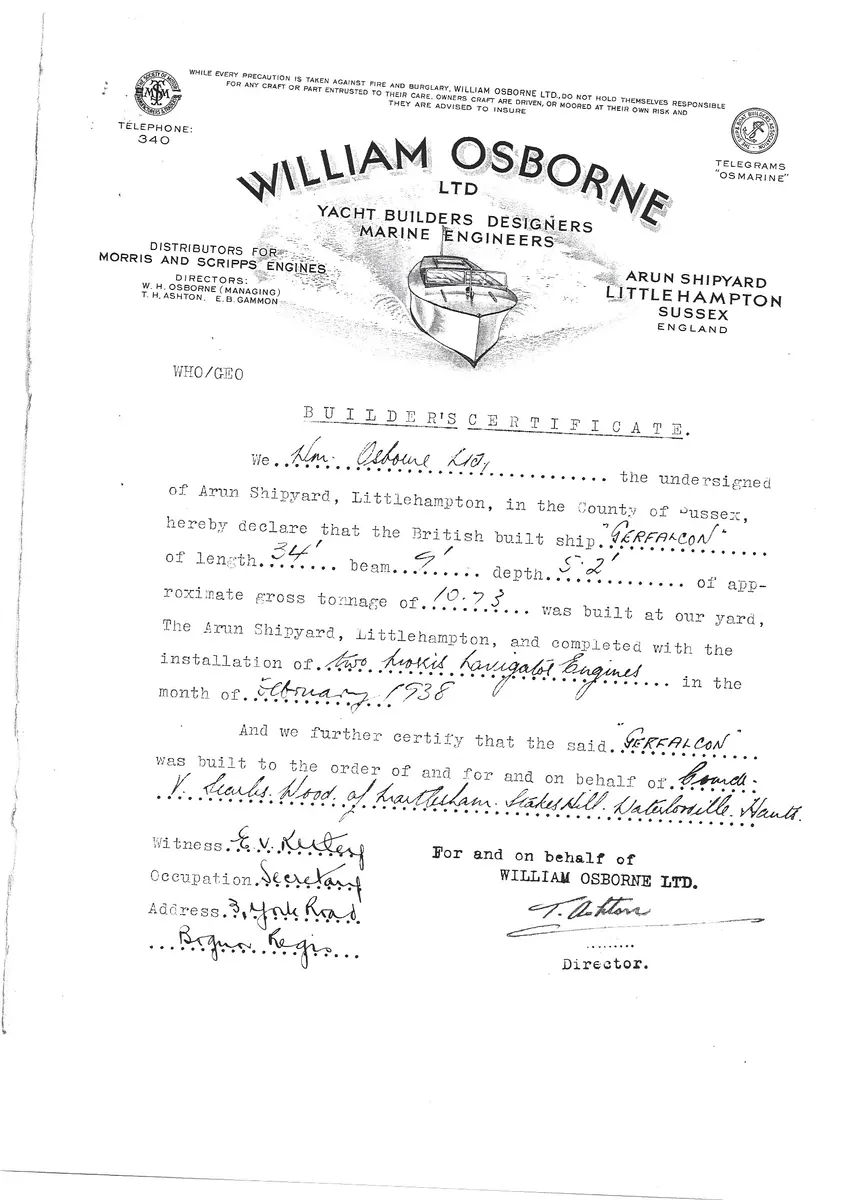 WHILE EVERY PRECAUTION IS TAKEN AGAINST FIRE AND BURGLARY, WILLIAM OSBORNE LTD., DO NOT HOLD THEMSELVES RESPONSIBLE
FOR ANY CRAFT OR PART ENTRUSTED TO THEIR CARE. OWNERS CRAFT ARE DRIVEN, OR MOORED AT THEIR OWN RISK AND
THEY ARE ADVISED TO INSURE
TELEPHONE:
340
TELEGRAMS
"OSMARINE"
WILLIAM OSBORNE
LTD
YACHT BUILDERS DESIGNERS
MARINE ENGINEERS
DISTRIBUTORS FOR
MORRIS AND SCRIPPS ENGINES
DIRECTORS:
W. H. OSBORNE (MANAGING)
T. H. ASHTON. E. B. GAMMON
ARUN SHIPYARD
LITTLEHAMPTON
SUSSEX
ENGLAND
WHO/GEO
BUILDER'S CERTIFICATE.
We Wm. Osborne Ltd, the undersigned
of Arun Shipyard, Littlehampton, in the County of Sussex,
hereby declare that the British built ship "GERFALCON"
of length 34' beam 9' depth 5.2' of app-
roximate gross tonnage of 10.73 was built at our yard,
The Arun Shipyard, Littlehampton, and completed with the
installation of two Morris Navigator Engines in the
month of February 1938
And we further certify that the said "GERFALCON"
was built to the order of and for and on behalf of
V. Searles. Wood. of Stakes Hill. Waterlooville. Hants.
Witness E. V.
Occupation Secretary
Address 3, York Road
Bognor Regis
For and on behalf of
WILLIAM OSBORNE LTD.
T. Ashton
Director.